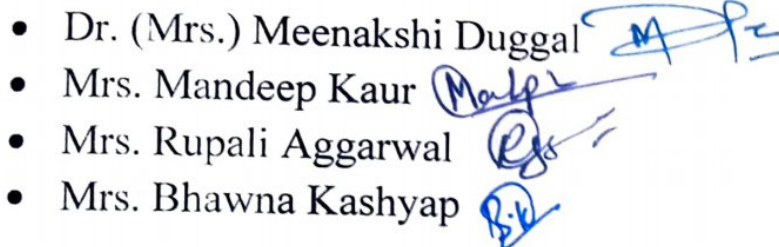 • Dr. (Mrs.) Meenakshi Duggal
• Mrs. Mandeep Kaur
• Mrs. Rupali Aggarwal
• Mrs. Bhawna Kashyap